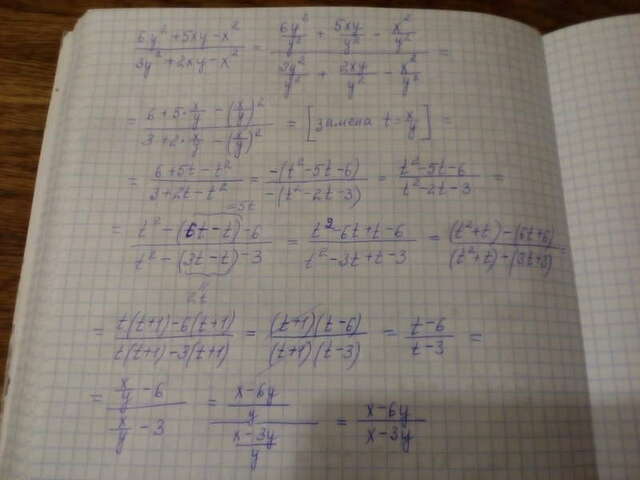 (6y² + 5xy - x²)/(3y² + 2xy - x²) = (6y²/y² + 5xy/y² - x²/y²)/(3y²/y² + 2xy/y² - x²/y²) =
= (6 + 5·x/y - (x/y)²)/(3 + 2·x/y - (x/y)²) = [замена t = x/y] =
= (6 + 5t - t²)/(3 + 2t - t²) = (-(t² - 5t - 6))/(-(t² - 2t - 3)) = (t² - 5t - 6)/(t² - 2t - 3) =
=5t
= (t² - (6t - t) - 6)/(t² - (3t - t) - 3) = (t² - 6t + t - 6)/(t² - 3t + t - 3) = ((t² + t) - (6t + 6))/((t² + t) - (3t + 3)) =
" 2t
= (t(t+1) - 6(t+1))/(t(t+1) - 3(t+1)) = ((t+1)(t-6))/((t+1)(t-3)) = (t-6)/(t-3) =
= (x/y - 6)/(x/y - 3) = ((x - 6y)/y)/((x - 3y)/y) = (x - 6y)/(x - 3y)